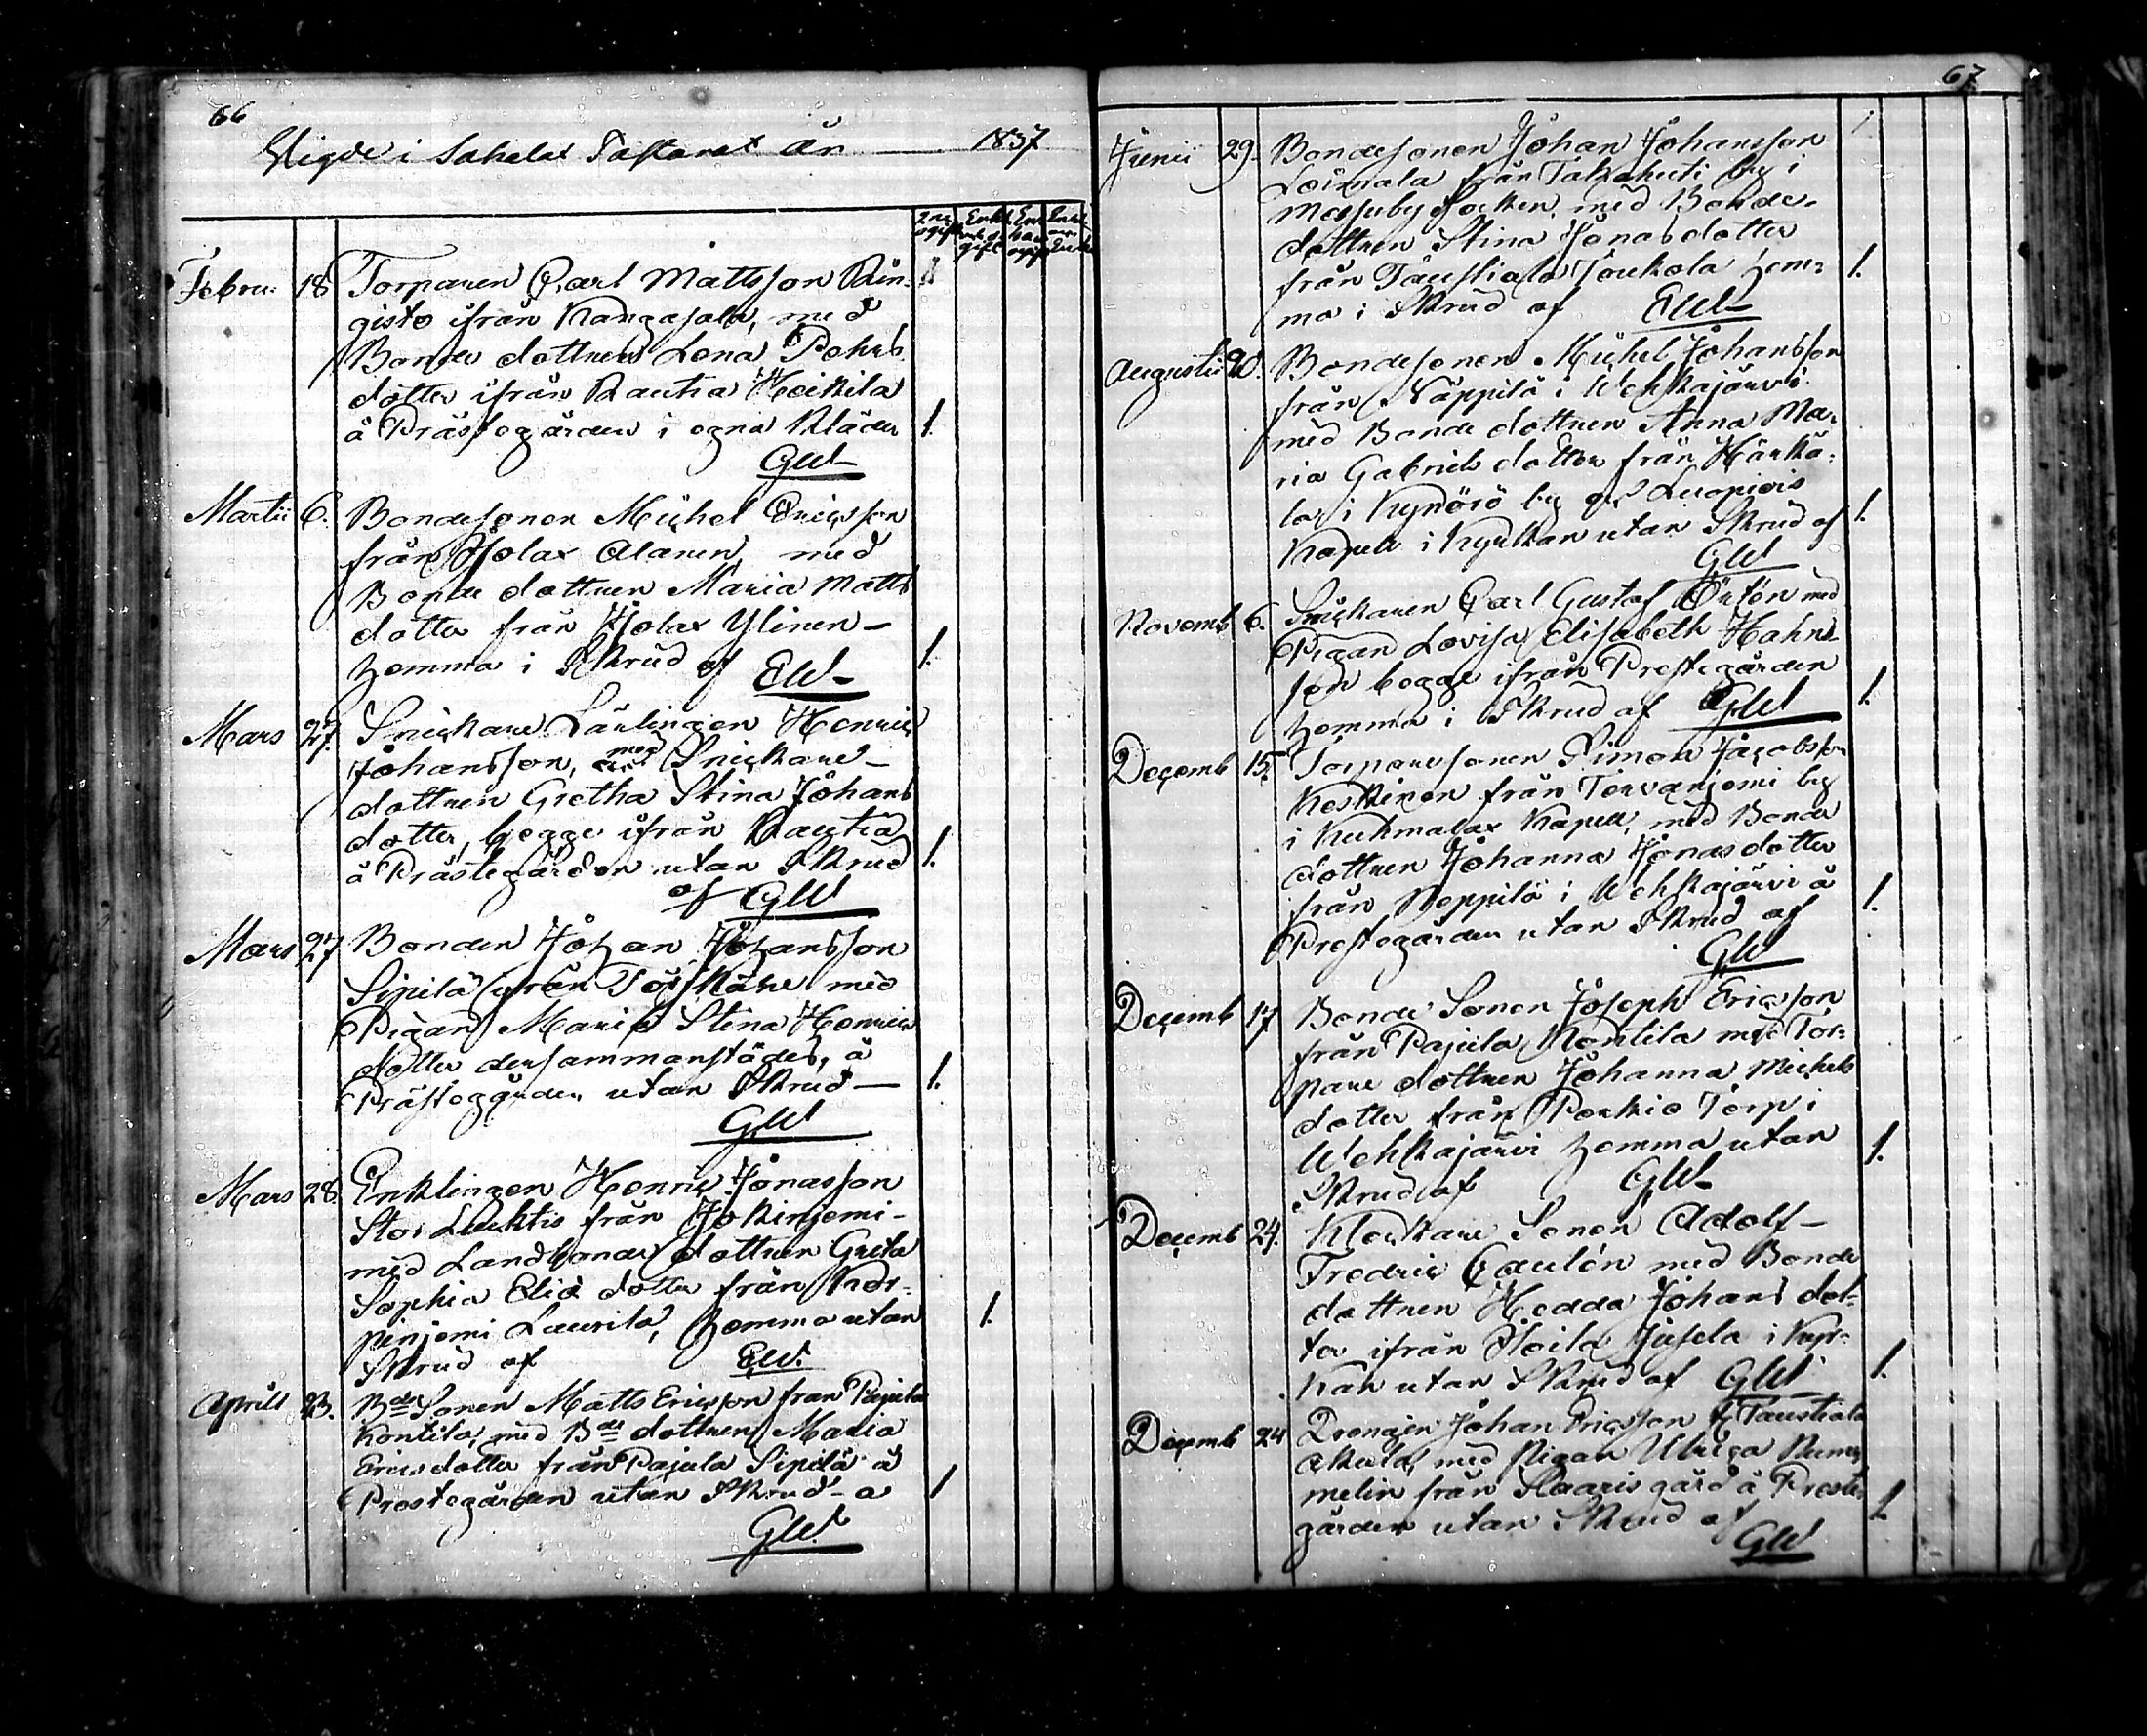 66
Wigde i Sahalax Pastorat År 1837
Februr: 18 Torparen Carl Mattsson Rin-
gisto ifrån Kangasala, med
Bonde dottren Lena Pehrs
dotter ifrån Rautia Heikila
å Prästegården i egna Kläder 1.
GW
Martii 6. Bondesonen Michel Ericsson
från Isolax Alanen, med
Bonde dottren Maria Matts
dotter från Isolax Ylinen -
hemma i Skrud af EW - 1.
Mars 27. Snickare Lärlingen Henric
Johansson, med Snickare -
dottren Gretha Stina Johans
dotter, begge ifrån Rautia
å Prästegården utan Skrud 1.
af GW
Mars 27 Bonden Johan Johansson
Sipilä ifrån med
Pigan Maria Stina Henrics
dotter dersammanstädes, å
Prästegården utan Skrud - 1.
GW
Mars 28. Enklingen Henric Jonasson
Stor Lauktis från Jokinjemi -
med Landbonde dottren Greta
Sophia Elia dotter från Kor-
pinjemi Laurila, hemma utan 1.
Skrud af EW.
Aprill 23. Bde Sonen Matts Ericsson från Pajula
Kontila, med Bde dottren Maria
Erics dotter från Pajula Sipilä å
Prestegården utan Skrud - a 1
GW.
67.
Junii 29. Bondesonen Johan Johansson
från Takahuti by i
Messuby Socken, med Bonde-
dottren Stina Jonasdotter
från Taustiala Joukola hem- 1.
ma i Skrud af EW -
Augustii 20. Bondesonen Michel Johansson
från Näppilä i Wehkajärvi
med Bonde dottren Anna Ma-
ria Gabriels dotter från Härkä-
lä i Kyynörö by af Luopiois
Kapell i Kyrkan utan Skrud af 1.
GW
Novemb 6. Snickaren Carl Gustaf med
Pigan Lovisa Elisabeth Hahns-
son begge ifrån Prestegården
hemma i Skrud af GW 1.
Decemb 15. Torparesonen Simon Jacobsson
Keskinen från Torvanjemi by
i Kuhmalax Kapell, med Bonde
dottren Johanna Jonasdotter
från Neppilä i Wehkajärvi å
Prestegården utan Skrud af 1.
GW
Decemb 17 Bonde Sonen Joseph Ericsson
från Pajula Kontila med Tor-
pare dottren Johanna Michels
dotter från Torp i
Wehkajärvi hemma utan 1.
Skrud af GW -
Decemb 24. Klockare Sonen Adolf -
Fredric Caulén med Bonde
dottren Hedda Johans dot-
ter ifrån i Kyr-
kan utan Skrud af GW 1.
Decemb 24 Drengen Johan Ericsson fr Taustiala
med Pigan Ulrica
melin från gård å Preste-
gården utan Skrud af 1
GW